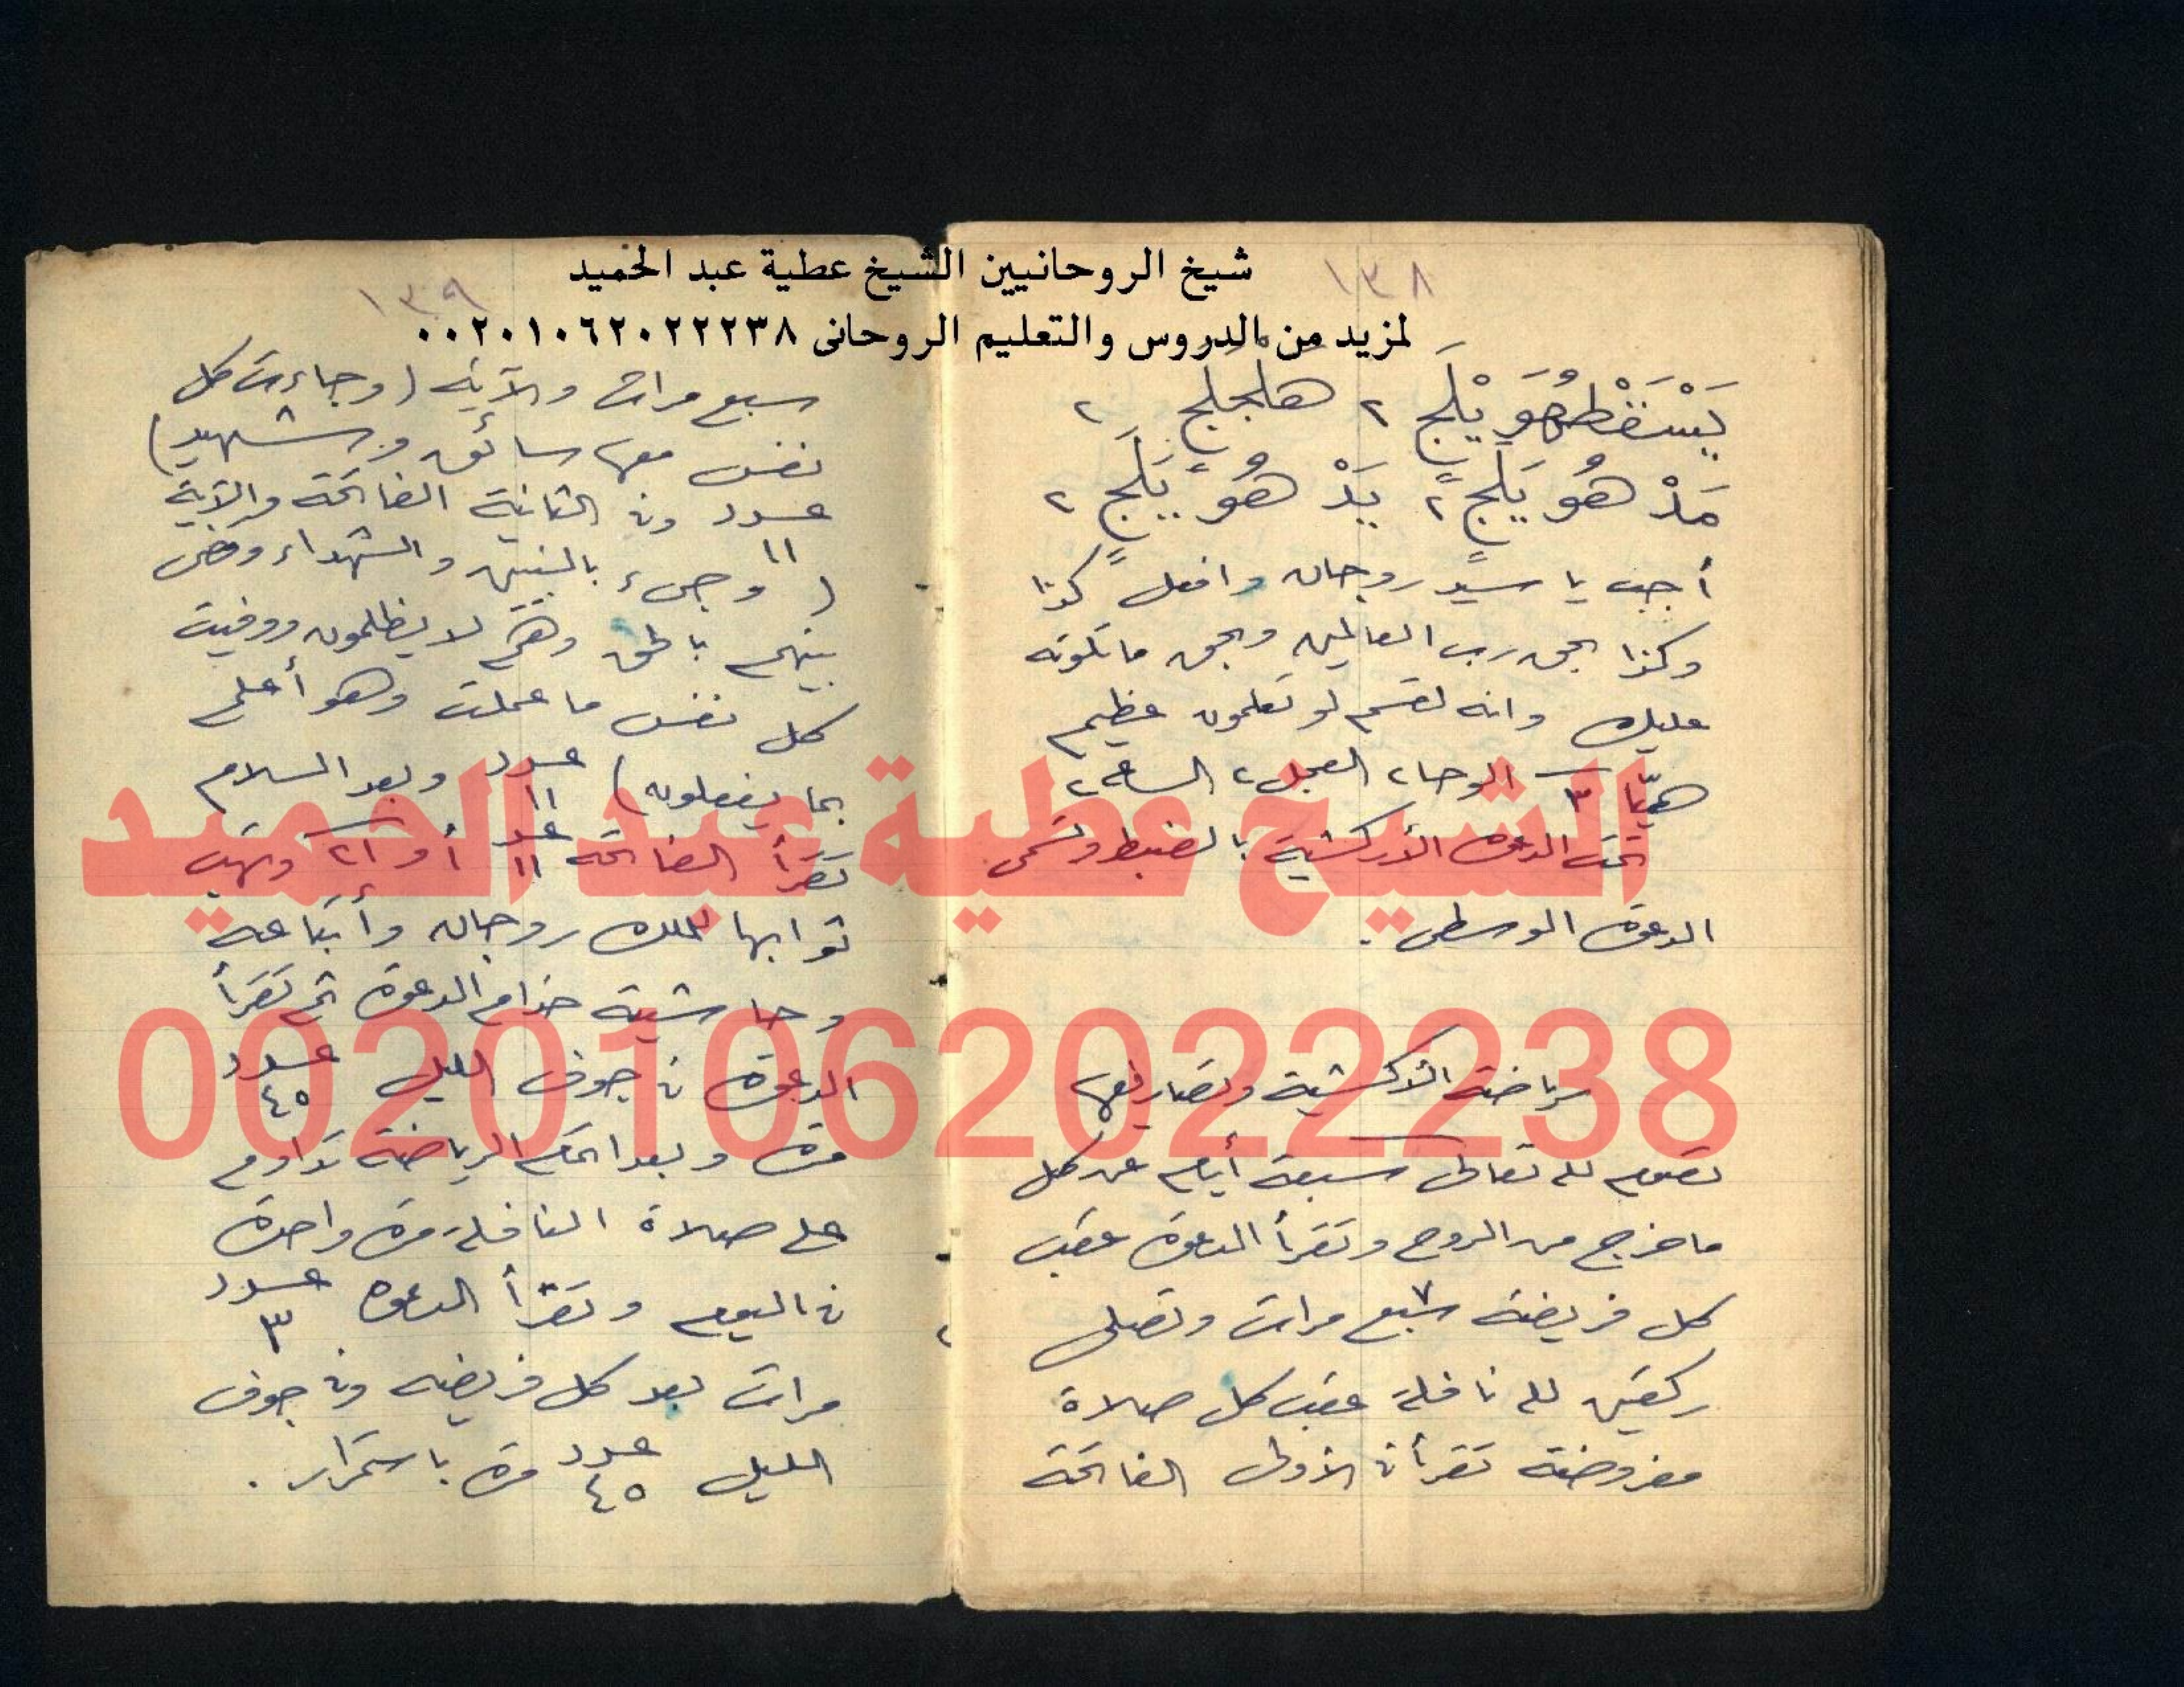 شيخ الروحانيين الشيخ عطية عبد الحميد
لمزيد من الدروس والتعليم الروحانى ٠٠٢٠١٠٦٢٠٢٢٢٣٨
١٣٨
هلجلج ٢
مَدْ هُو يَلَجٍ ٢ يَدْ هُو يَلَجٍ ٢
أجب يا سيد روجان وافعل كذا
وكذا بحق رب العالمين وبحق ما تلوته
عليك وانه لقسم لو تعلمون عظيم
هيّا ٣ الوحا ٢ العجل ٢ الساعه ٢
تمت الدعوة الأركشية بالضبط وتسمى
الدعوة الوسطى .
رياضة الأركشية وتصاريفها
تصوم لله تعالى سبعة أيام عن كل
ما خرج من الروح وتقرأ الدعوة عقب
كل فريضة سبع ٧ مرات وتصلى
ركعتين لله نافلة عقب كل صلاة
مفروضة تقرأ فى الأولى الفاتحة
١٣٩
سبع مرات والآية (وجاءت كل
نفس معها سائق وشهيد)
عدد ١١ وفى الثانية الفاتحة والآية
(وجىء بالنبين والشهداء وقضى
بينهم بالحق وهم لا يظلمون ووفيت
كل نفس ما عملت وهو أعلم
بما يفعلون) عدد ١١ وبعد السلام
تقرأ الفاتحة عدد ١١ أو ٢١ وتهب
ثوابها للملك روجان وأتباعه
وحاشيته خدام الدعوة ثم تقرأ
الدعوة فى جوف الليل عدد ٤٥
مرة وبعد اتمام الرياضة تداوم
على صلاة النافلة مرة واحدة
فى اليوم وتقرأ الدعوة عدد ٣
مرات بعد كل فريضه وفى جوف
الليل عدد ٤٥ مرة باستمرار .
الشيخ عطية عبد الحميد
00201062022238